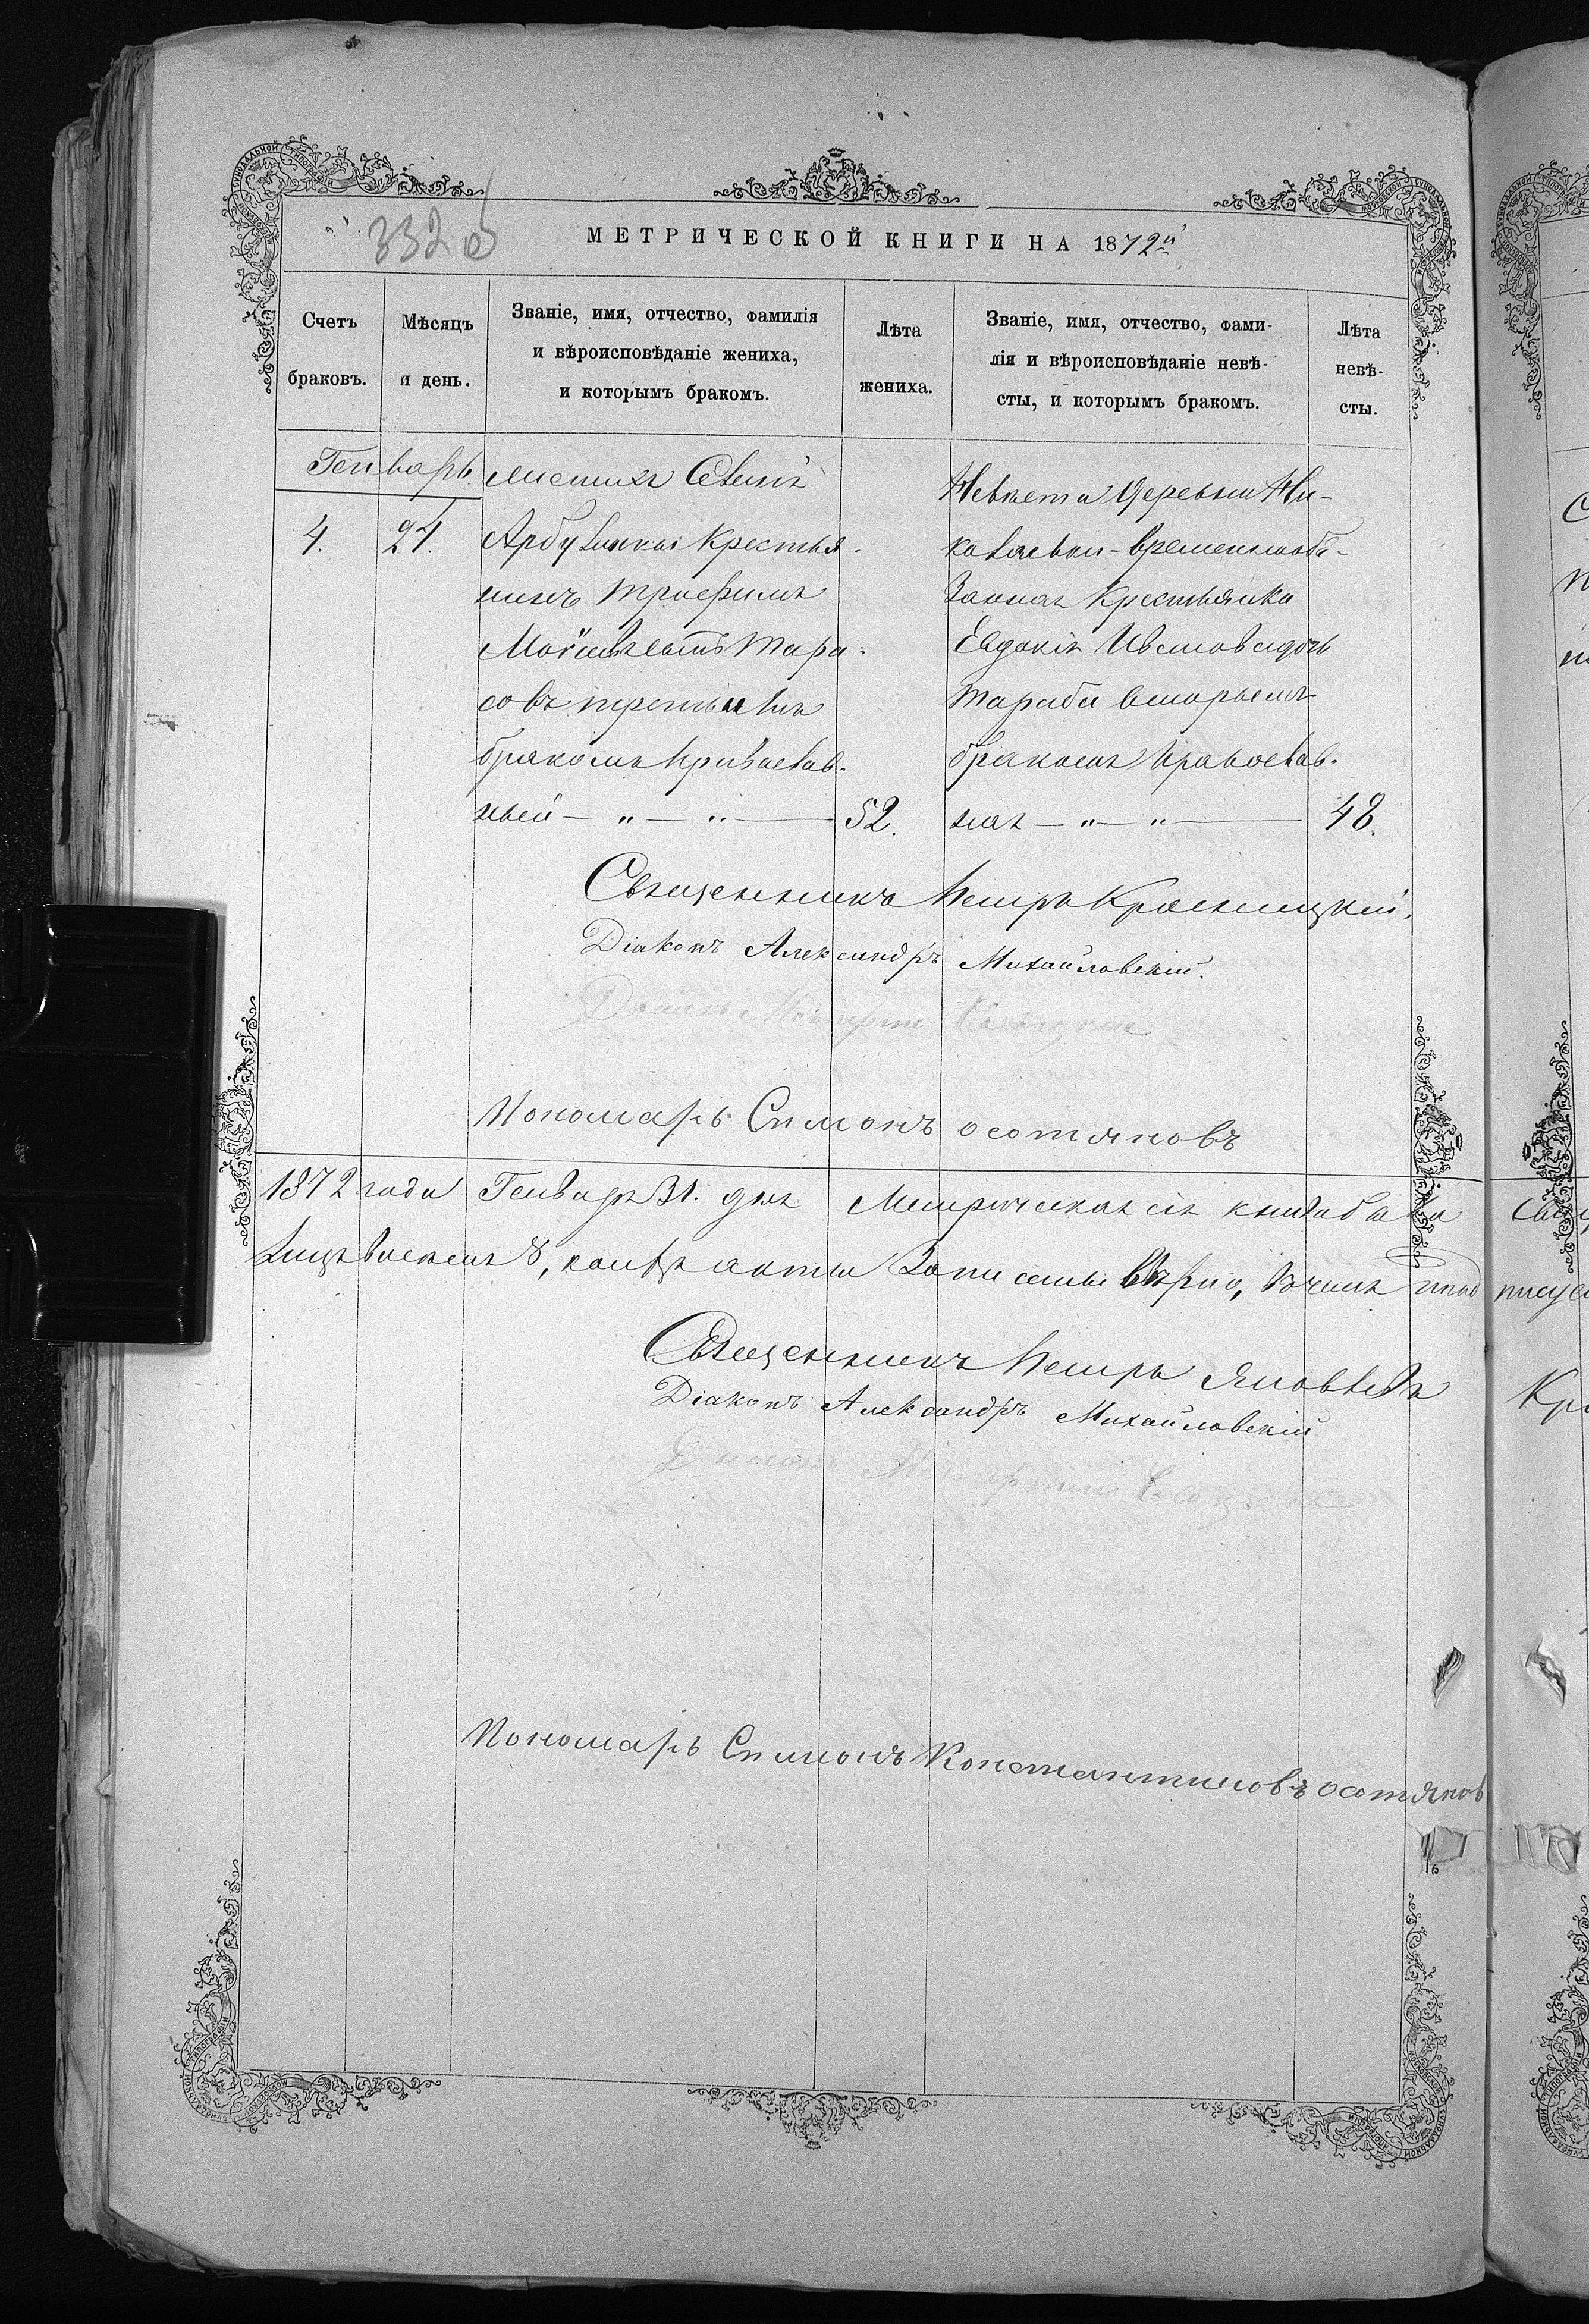 332 об
МЕТРИЧЕСКОЙ КНИГИ НА 1872й
Счетъ браковъ.
Мѣсяцъ и день.
Званіе, имя, отчество, фамилія
и вѣроисповѣданіе жениха,
и которымъ бракомъ.
Лѣта жениха.
Званіе, имя, отчество, фами-
лія и вѣроисповѣданіе невѣ-
сты, и которымъ бракомъ.
Лѣта невѣ-
сты.
Генварь
4.
24.
Женихъ Селенія
Арбузинки крестья-
нинъ Трофимъ
Моисеевъ Тара-
совъ третьимъ
бракомъ православ-
ный — „ — „ —
52.
Невѣста деревни Ни-
колаевки – временнообя-
занная крестьянка
Евдокія Иванова дочь
Тараба вторымъ
бракомъ православ-
ная — „ — „ —
48.
Священникъ Петръ Красницкій.
Діаконъ Александръ Михайловскій.
Пономарь Симонъ Осотяновъ
1872 года Генваря 31. дня Метрическая сія книга
акты записаны вѣрно, въ чемъ под
Священникъ Петръ Яковлевъ
Діаконъ Александръ Михайловскій
Пономарь Симонъ Константиновъ Осотянов